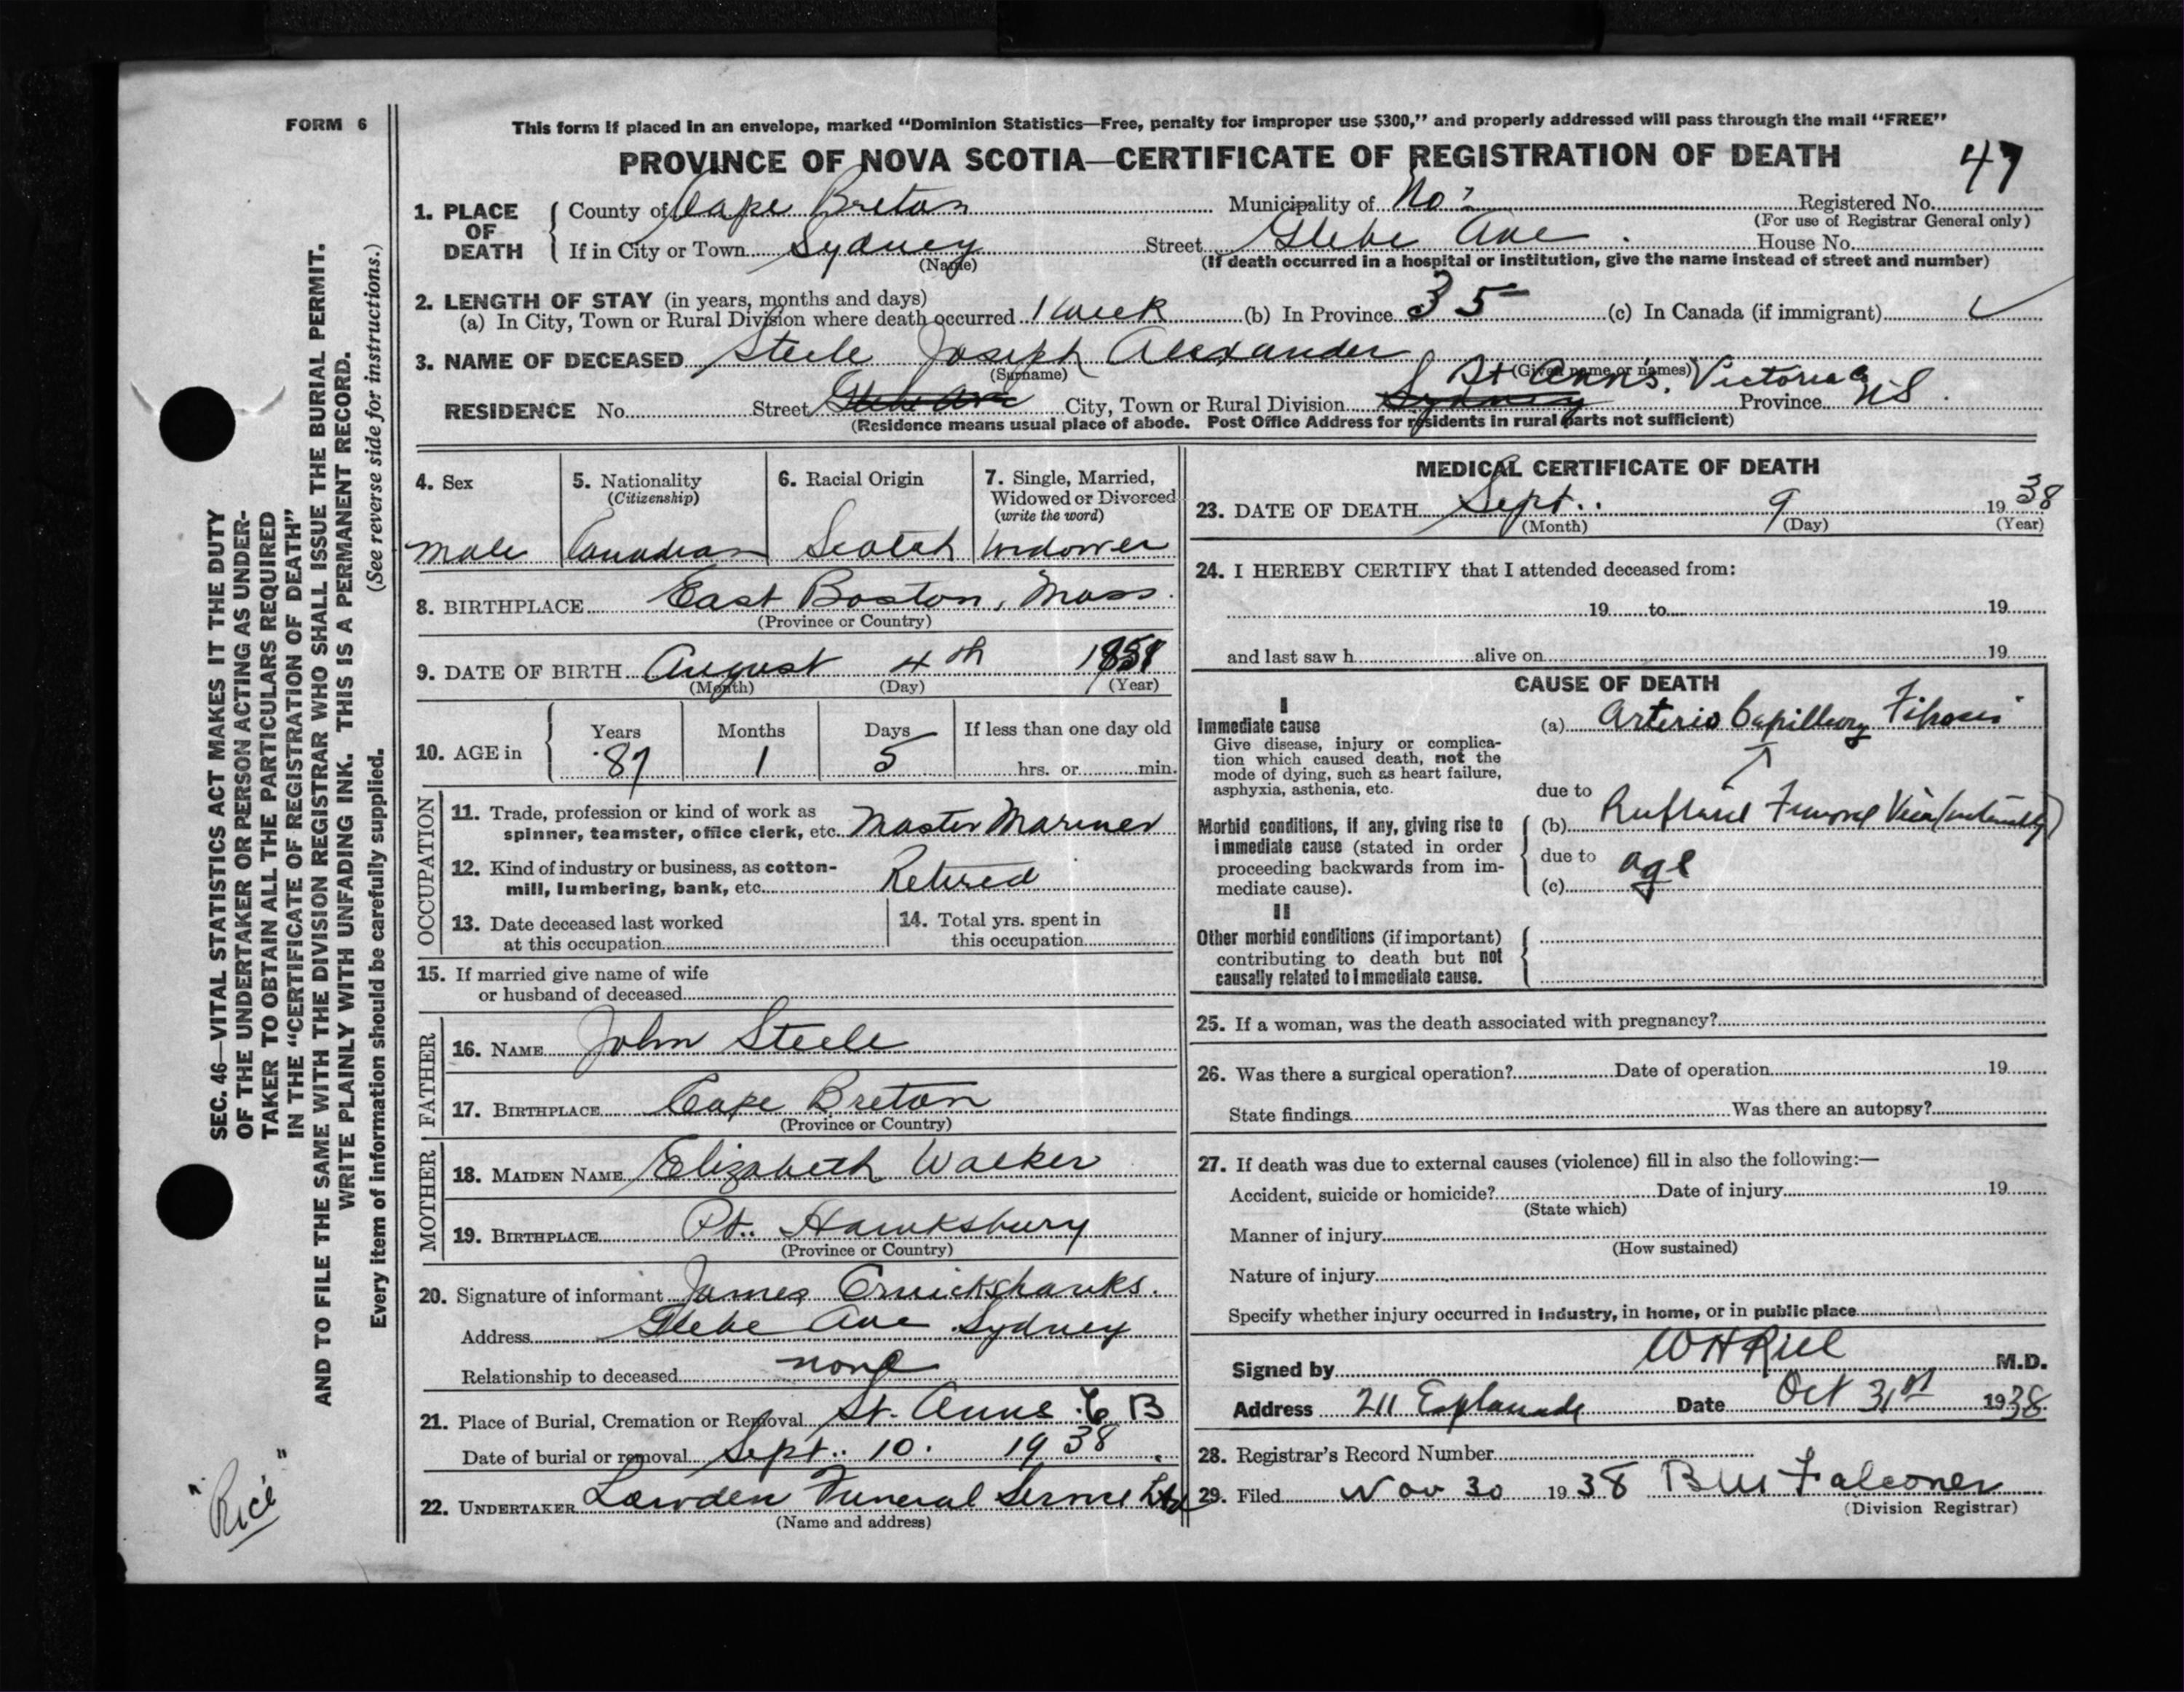 FORM 6
This form if placed in an envelope, marked “Dominion Statistics—Free, penalty for improper use $300,” and properly addressed will pass through the mail “FREE”
PROVINCE OF NOVA SCOTIA—CERTIFICATE OF REGISTRATION OF DEATH
47
1. PLACE OF DEATH County of Cape Breton Municipality of No: Registered No.
(For use of Registrar General only)
If in City or Town Sydney Street Glebe Ave. House No.
(Name) (If death occurred in a hospital or institution, give the name instead of street and number)
2. LENGTH OF STAY (in years, months and days)
(a) In City, Town or Rural Division where death occurred 1 week (b) In Province 35 (c) In Canada (if immigrant) ✓
3. NAME OF DECEASED Steele Joseph Alexander
(Surname) (Given name or names)
St Ann's, Victoria Co
RESIDENCE No. Street Glebe Ave City, Town or Rural Division Sydney Province NS.
(Residence means usual place of abode. Post Office Address for residents in rural parts not sufficient)
4. Sex
male
5. Nationality
(Citizenship)
Canadian
6. Racial Origin
Scotch
7. Single, Married,
Widowed or Divorced
(write the word)
Widower
8. BIRTHPLACE East Boston, Mass.
(Province or Country)
9. DATE OF BIRTH August 4th 1851
(Month) (Day) (Year)
10. AGE in Years Months Days If less than one day old
87 1 5 hrs. or min.
OCCUPATION
11. Trade, profession or kind of work as
spinner, teamster, office clerk, etc. Master Mariner
12. Kind of industry or business, as cotton-
mill, lumbering, bank, etc. Retired
13. Date deceased last worked
at this occupation
14. Total yrs. spent in
this occupation
15. If married give name of wife
or husband of deceased
FATHER
16. NAME John Steele
17. BIRTHPLACE Cape Breton
(Province or Country)
MOTHER
18. MAIDEN NAME Elizabeth Walker
19. BIRTHPLACE Pt. Hawksbury
(Province or Country)
20. Signature of informant James Cruickshanks.
Address Glebe Ave Sydney
Relationship to deceased none
21. Place of Burial, Cremation or Removal St. Anns C B
Date of burial or removal Sept. 10. 1938
22. UNDERTAKER Lowden Funeral Service Ltd
(Name and address)
MEDICAL CERTIFICATE OF DEATH
23. DATE OF DEATH Sept. 9 1938
(Month) (Day) (Year)
24. I HEREBY CERTIFY that I attended deceased from:
19 to 19
and last saw h alive on 19
CAUSE OF DEATH
I
Immediate cause
Give disease, injury or complica-
tion which caused death, not the
mode of dying, such as heart failure,
asphyxia, asthenia, etc.
(a) Arterio Capillary Fibrosis
due to
Morbid conditions, if any, giving rise to
immediate cause (stated in order
proceeding backwards from im-
mediate cause).
(b) Femoral
due to
(c) age
II
Other morbid conditions (if important)
contributing to death but not
causally related to immediate cause.
25. If a woman, was the death associated with pregnancy?
26. Was there a surgical operation? Date of operation 19
State findings Was there an autopsy?
27. If death was due to external causes (violence) fill in also the following:—
Accident, suicide or homicide? Date of injury 19
(State which)
Manner of injury
(How sustained)
Nature of injury
Specify whether injury occurred in industry, in home, or in public place
Signed by W H Rice M.D.
Address 211 Esplanade Date Oct 31st 1938
28. Registrar's Record Number
29. Filed Nov 30 1938 B W Falconer
(Division Registrar)
SEC. 46—VITAL STATISTICS ACT MAKES IT THE DUTY
OF THE UNDERTAKER OR PERSON ACTING AS UNDER-
TAKER TO OBTAIN ALL THE PARTICULARS REQUIRED
IN THE “CERTIFICATE OF REGISTRATION OF DEATH”
AND TO FILE THE SAME WITH THE DIVISION REGISTRAR WHO SHALL ISSUE THE BURIAL PERMIT.
WRITE PLAINLY WITH UNFADING INK. THIS IS A PERMANENT RECORD.
(See reverse side for instructions.)
Every item of information should be carefully supplied.
"Rice"